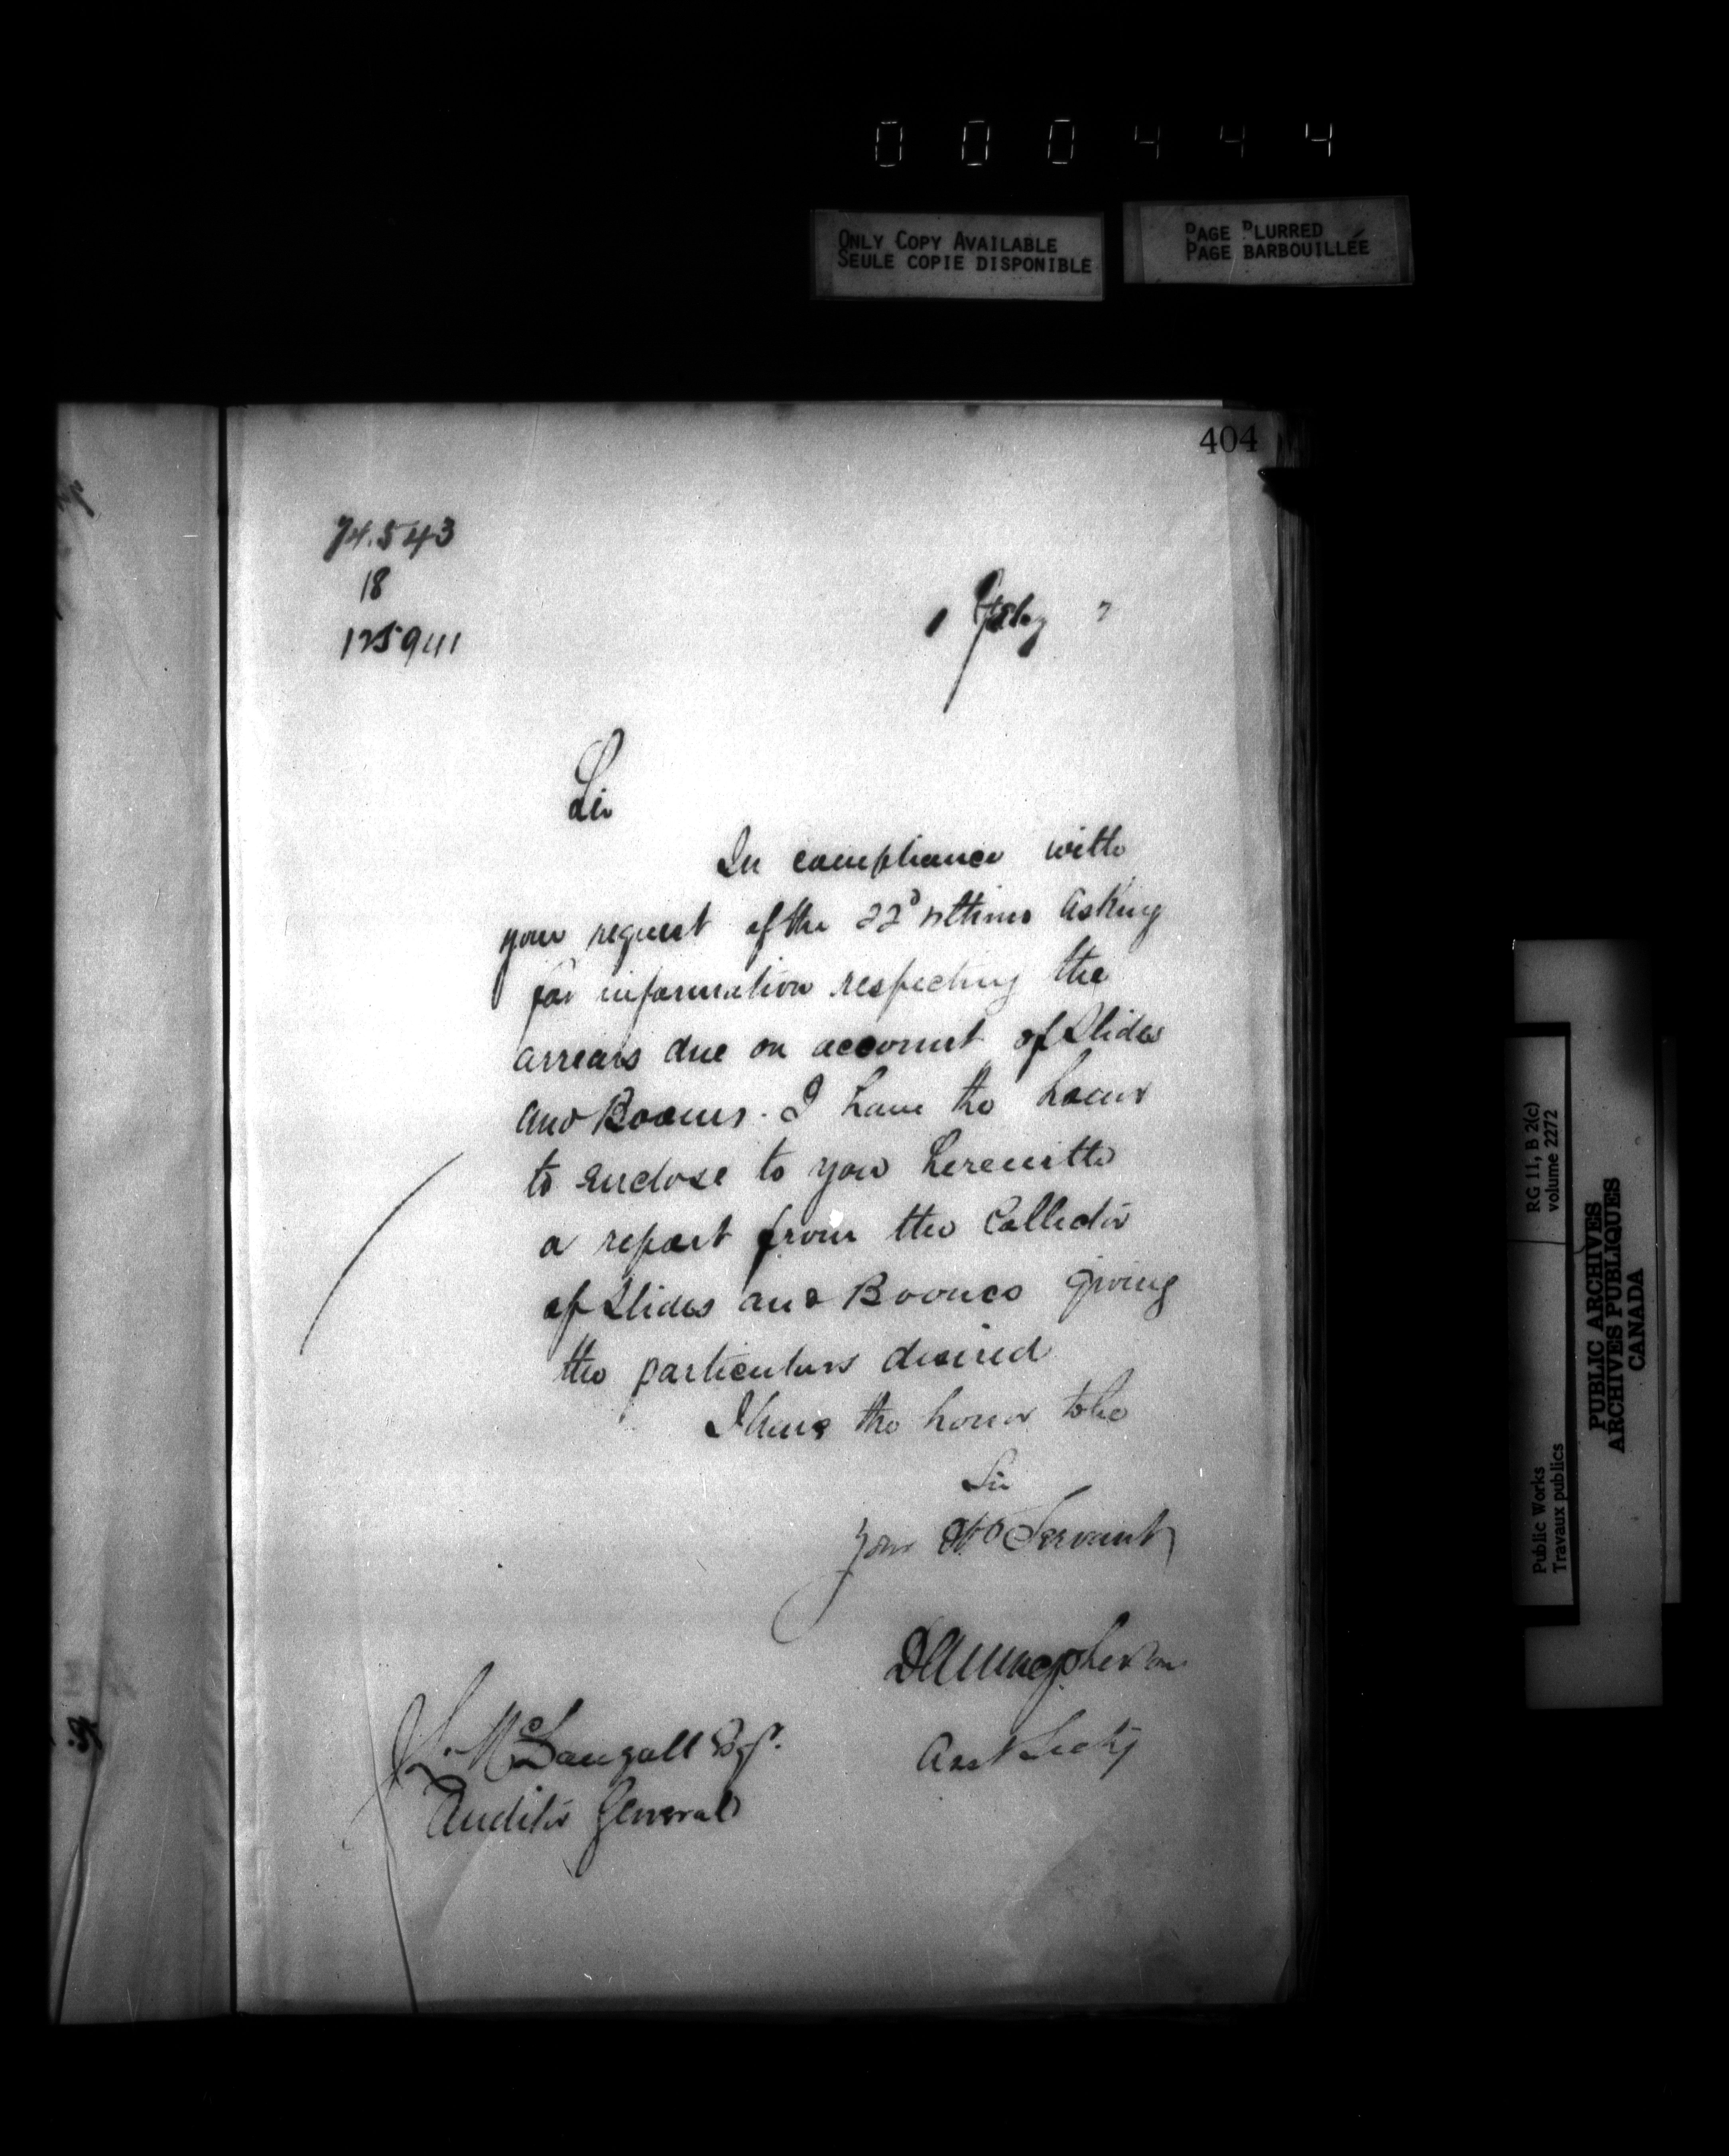 000444
ONLY COPY AVAILABLE
SEULE COPIE DISPONIBLE
PAGE BLURRED
PAGE BARBOUILLÉE
404
74.543
18
1 Feby 7
Sir
In compliance with
your request of the 22d ultimo asking
for information respecting the
arrears due on account of Slides
and Booms. I have the honor
to enclose to you herewith
a report from the Collector
of Slides and Booms giving
the particulars desired
I have the honor to be
Sir
Your Obt Servant
D A Macpherson
Asst Secty
J. L. McDougall Esq.
Auditor General
RG 11, B 2(c)
volume 2272
Public Works
Travaux publics
PUBLIC ARCHIVES
ARCHIVES PUBLIQUES
CANADA